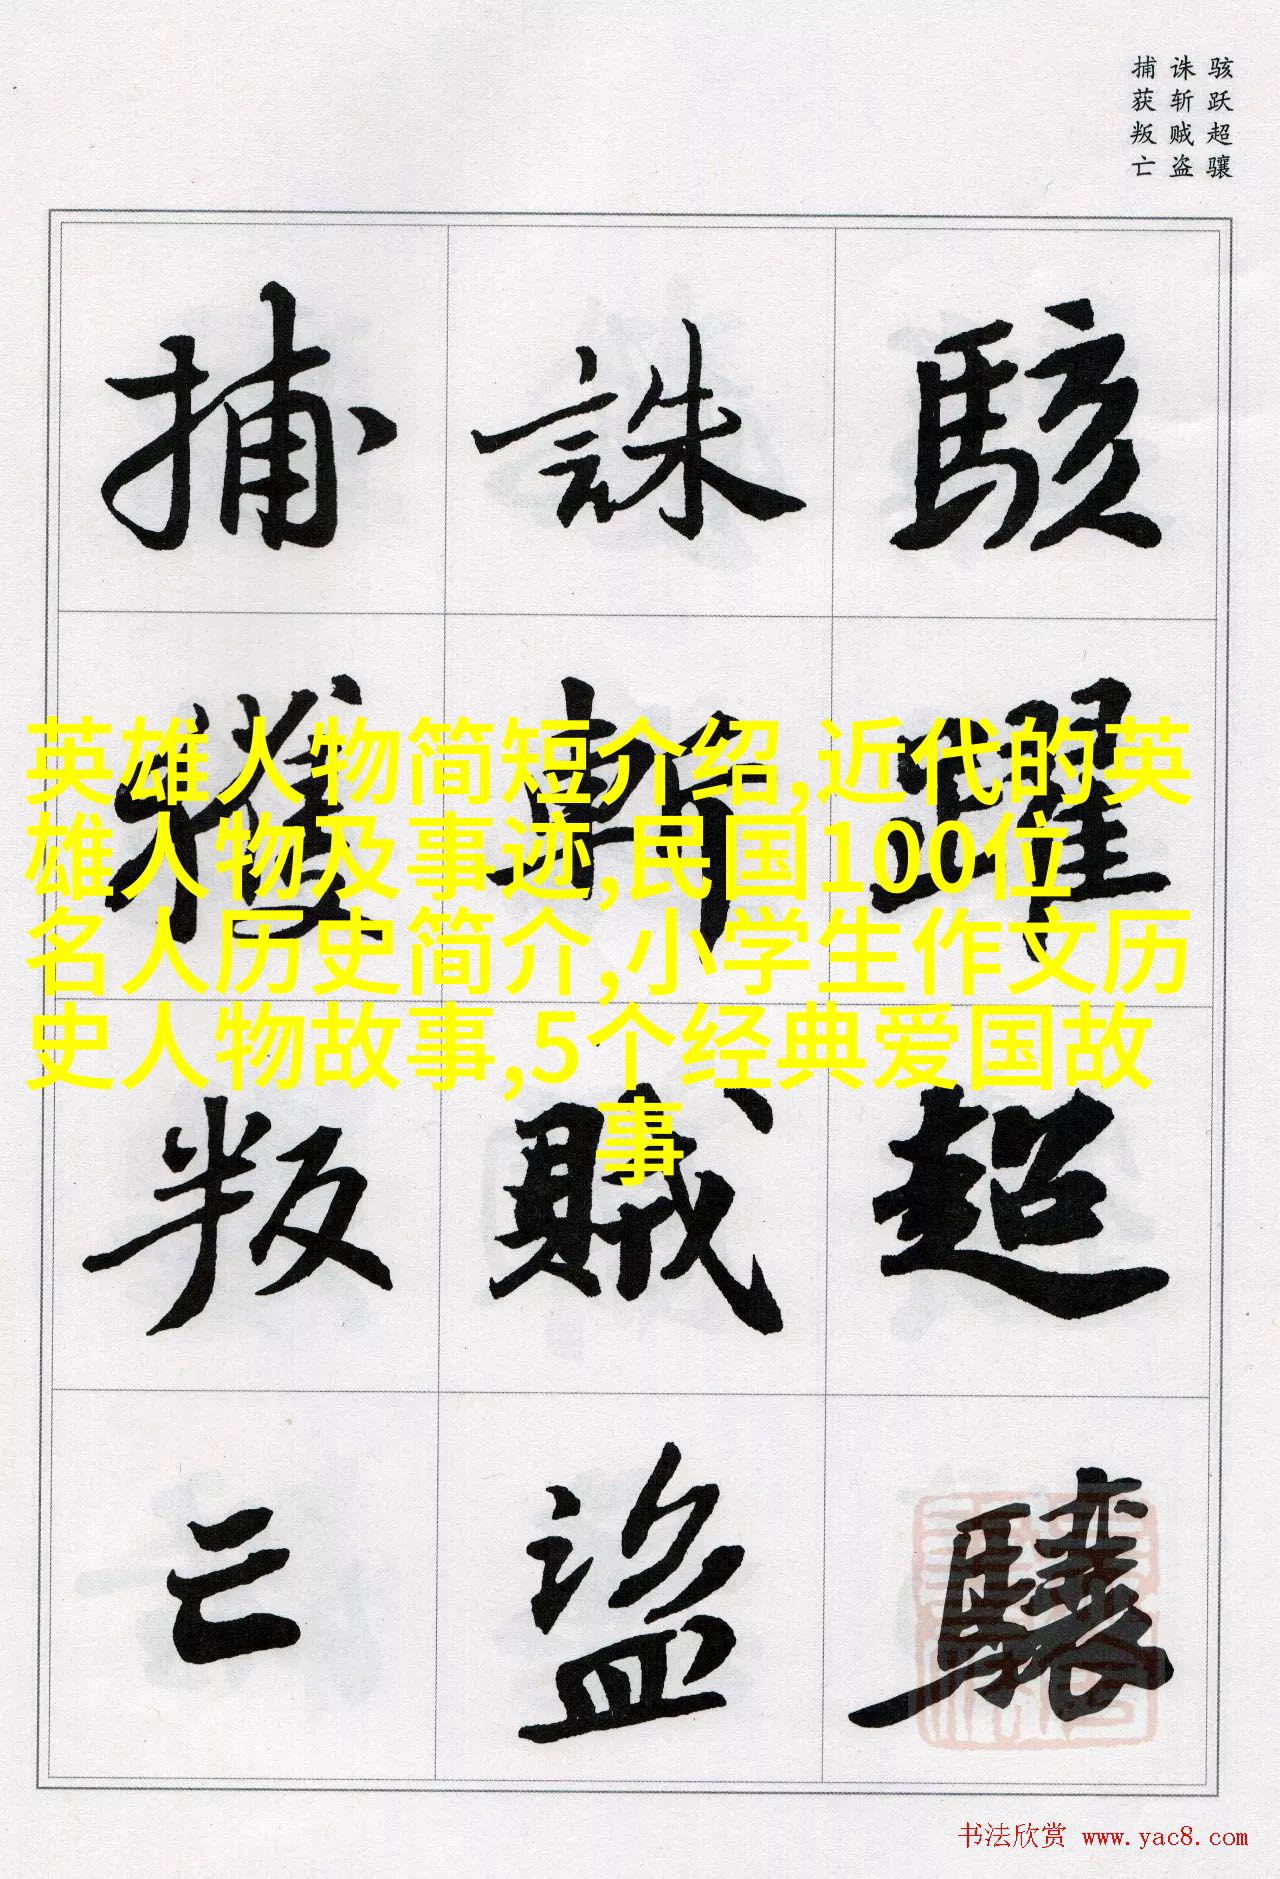 骇跃超骧
诛斩贼盗
捕获叛亡
駭躍超驤
誅斬賊盜
捕獲叛亡
英雄人物简短介绍,近代的英
雄人物及事迹,民国100位
名人历史简介,小学生作文历
史人物故事,5个经典爱国故
事
书法欣赏 www.yac8.com